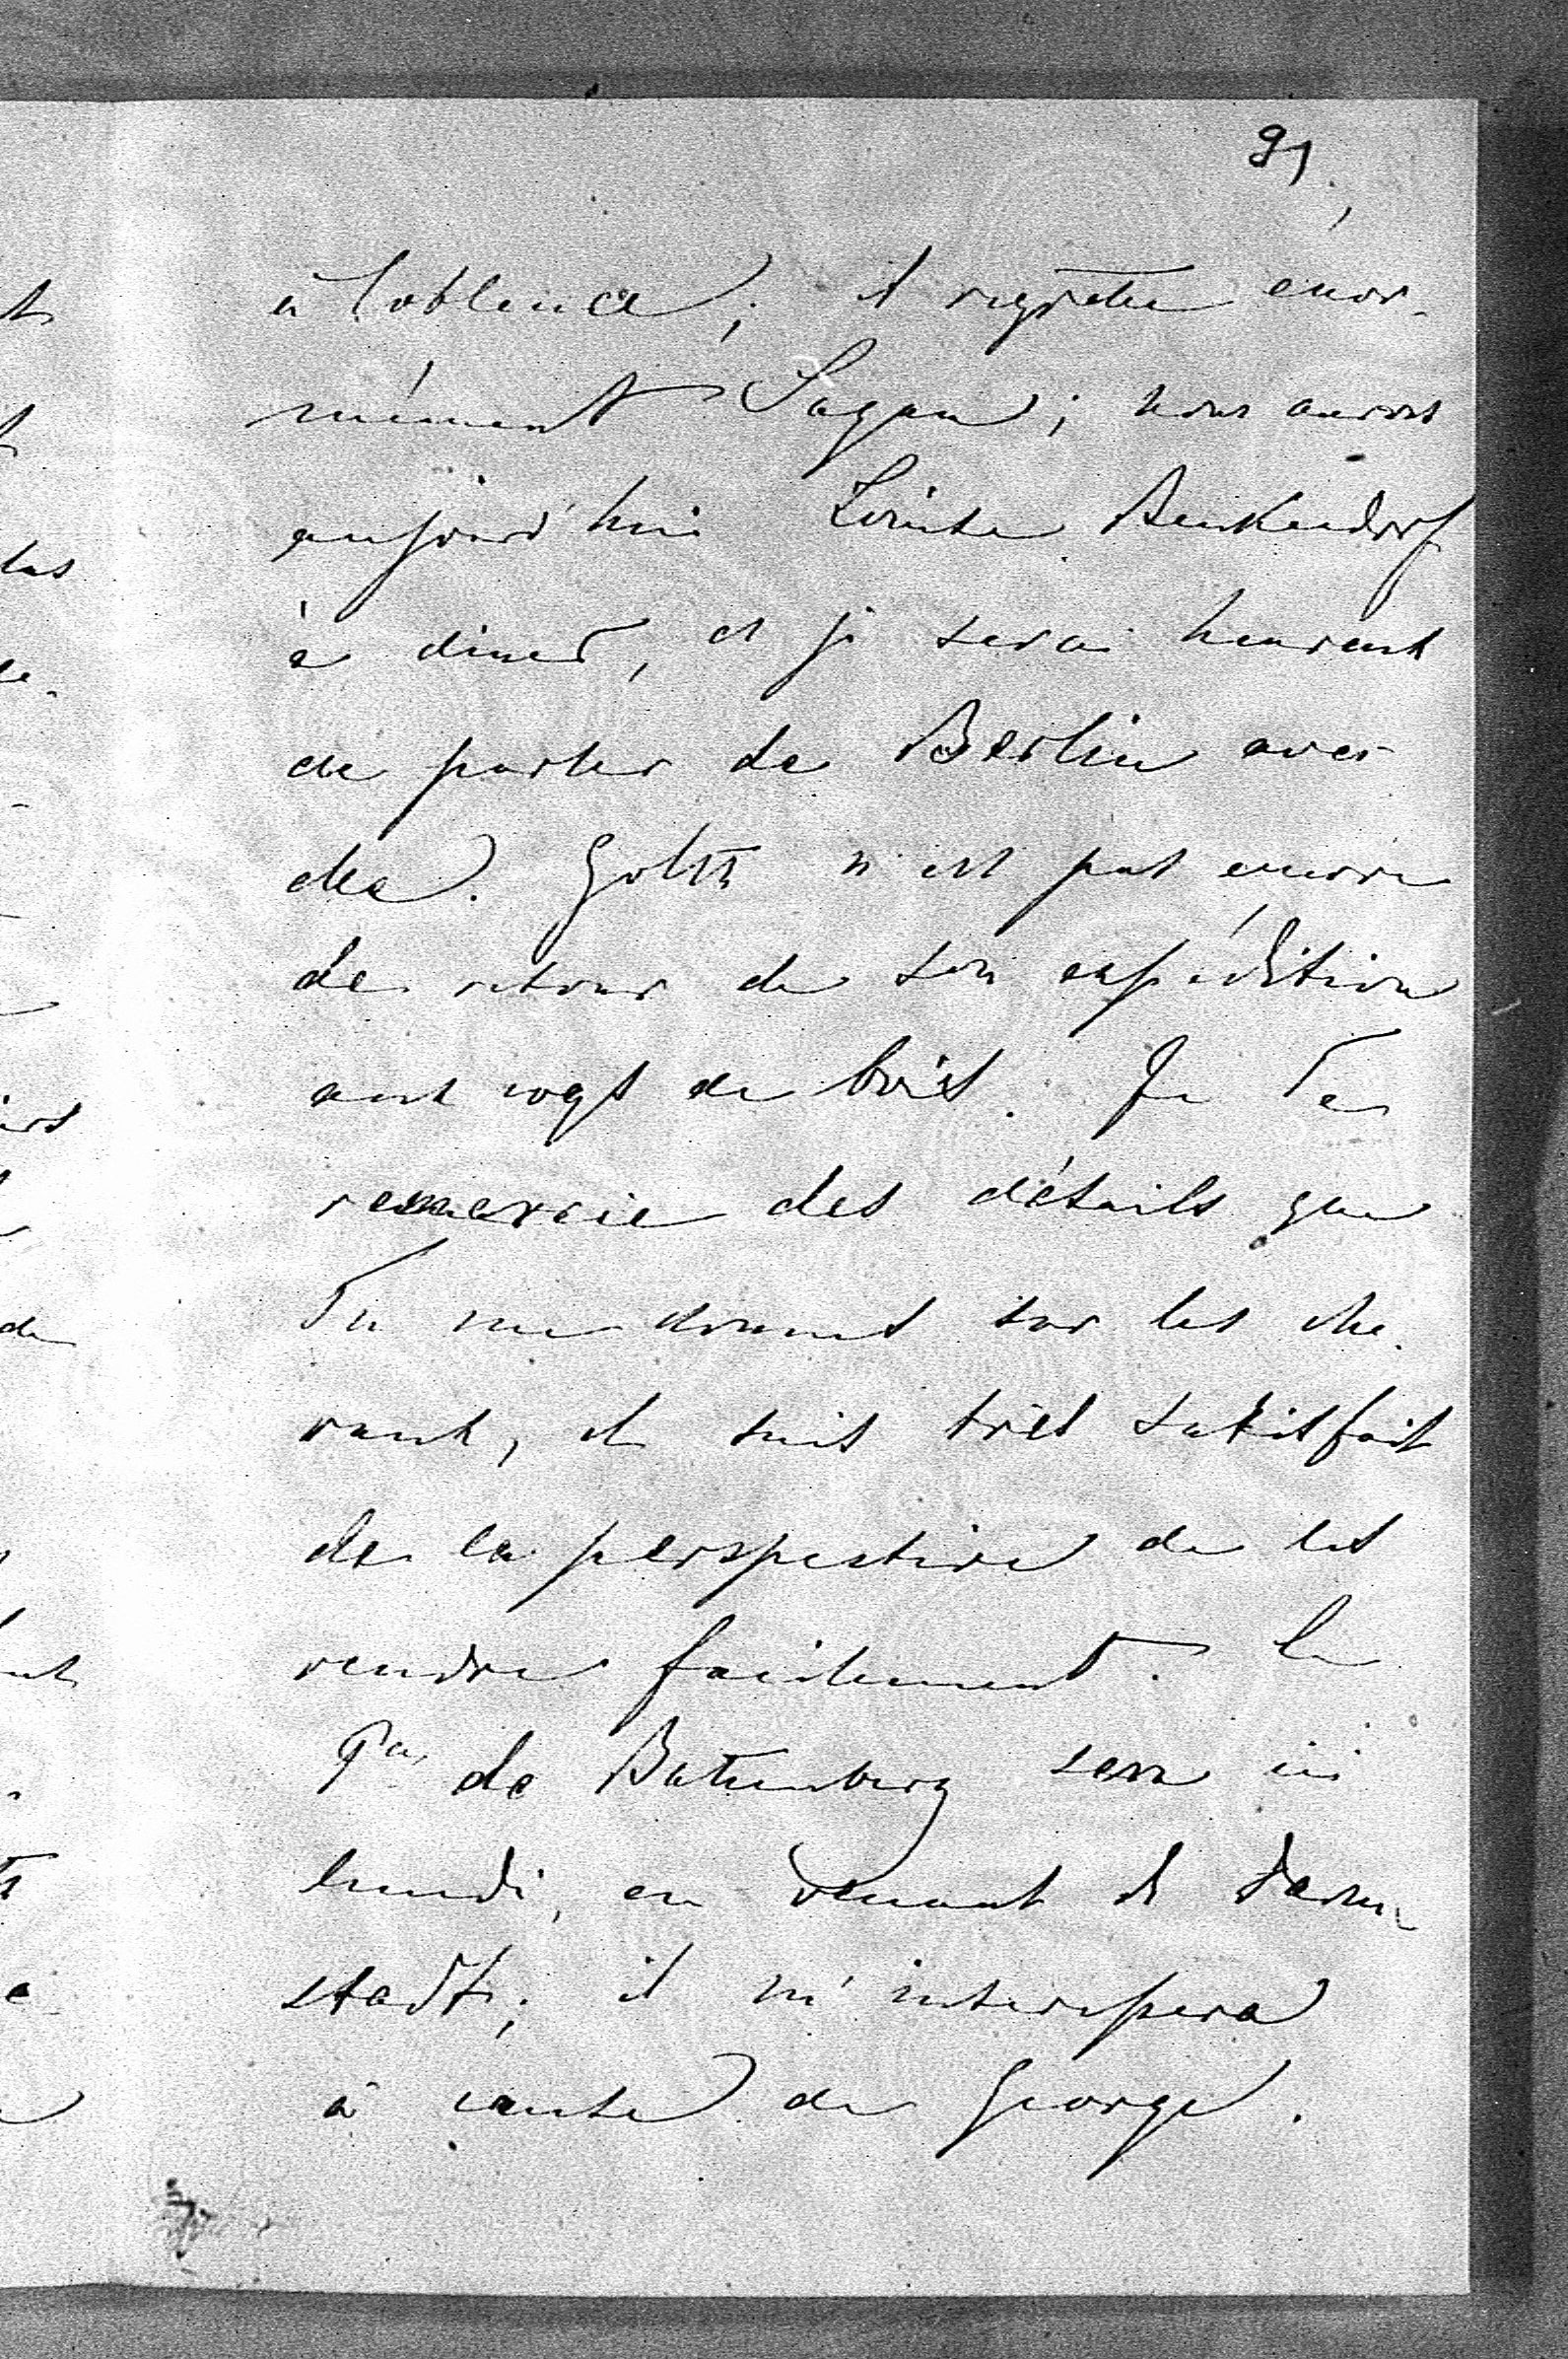 91
à Coblence, et regrette énor-
mément Sagan; nous aurons
aujourd'hui Louise Benkendorf
à diner, et je serai heureux
de parler de Berlin avec
elle. Goltz n'est pas encore
de retour de son expédition
aux coqs de bois. Je Te
remercie des détails que
Tu me donnes sur les che-
vaux, et suis très satisfait
de la perspective de les
vendre facilement. Le
Pce de Battenberg sera ici
lundi, en venant de Darm-
stadt; il m'intéressera
à cause de George.